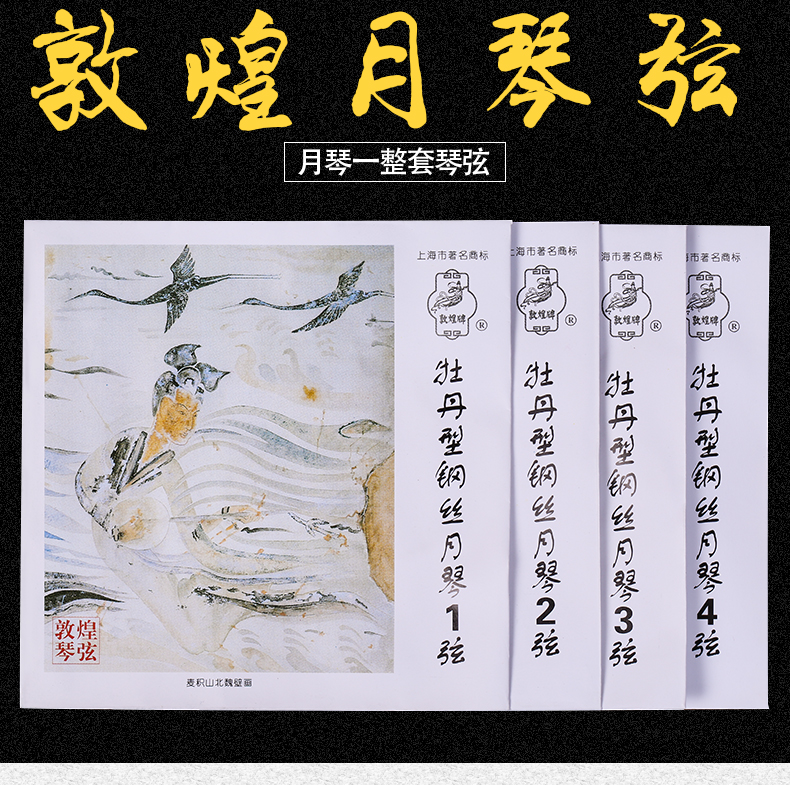 敦煌月琴弦
月琴一整套琴弦
上海市著名商标
敦煌牌
®
牡丹型钢丝月琴1弦
敦煌
琴弦
麦积山北魏壁画
上海市著名商标
敦煌牌
®
牡丹型钢丝月琴2弦
海市著名商标
敦煌牌
®
牡丹型钢丝月琴3弦
市著名商标
敦煌牌
®
牡丹型钢丝月琴4弦